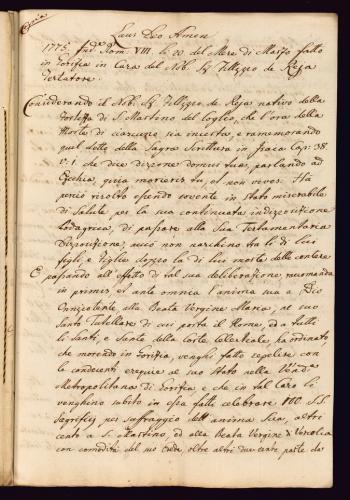 Copia
Laus Deo Amen
1775. Ind.e Rom. VIII. li 20 del Mese di Marzo fatto
in Gorizia in Casa del Nob. Sig. Filippo de Reja
Testatore.
Considerando il Nob. Sig. Filippo de Reja nativo della
Fortezza di S. Martino del Coglio, che l'ora della
Morte di ciascuno sia incerta, e ramemorando
quel detto della Sagra Scrittura in Isaia Cap: 38.
v. 1 che dice dispone domui tuæ, parlando ad
Ezechia, quia morieris tu, et non vives. Hà
perciò risolto essendo sovente in stato miserabile
di Salute per la sua continuata indisposizione
Podagrica, di passare alla Sua Testamentaria
Disposizione, acciò non naschino tra li di lui
figli, e figlie doppo la di lui morte delle contese
E passando all'effetto di tal sua deliberazione, racomanda
in primis et ante omnia l'anima sua a Dio
Onnipotente alla Beata Vergine Maria, al suo
Santo Tutellare di cui porta il Nome, ed a tutti
li Santi, e Sante della Corte Celesteale, ha ordinato,
che morendo in Gorizia, venghi fatto sepelire con
le condecenti exequie al suo Stato nella
Metropolitana di Gorizia e che in tal Caso li
venghino subito in essa fatti celebrare 100 S.S.
Sagrifizj per suffraggio dell'anima Sua, altri
cento a S. Martino, ed alla Beata Vergine di
con comodità del un Anno, oltre altri due cento parte da